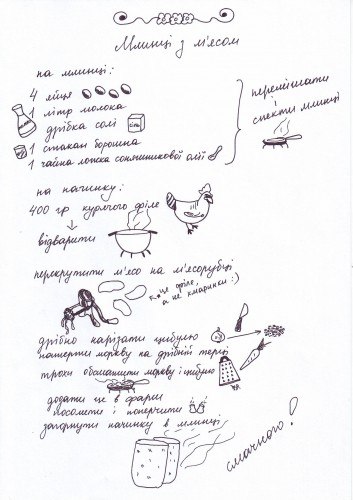 Млинці з м'ясом
на млинці:
4 яйця
1 літр молока
дрібка солі
сіль
1 стакан борошна
1 чайна ложка соняшникової олії
перемішати
і
спекти млинці
на начинку:
400 гр курячого філе
відварити
перекрутити м'ясо на м'ясорубці
це філе,
а не хмаринки :)
дрібно нарізати цибулю
натерти моркву на дрібній терці
трохи обсмажити моркву і цибулю
додати це в фарш
посолити і поперчити
загорнути начинку в млинці
смачного!